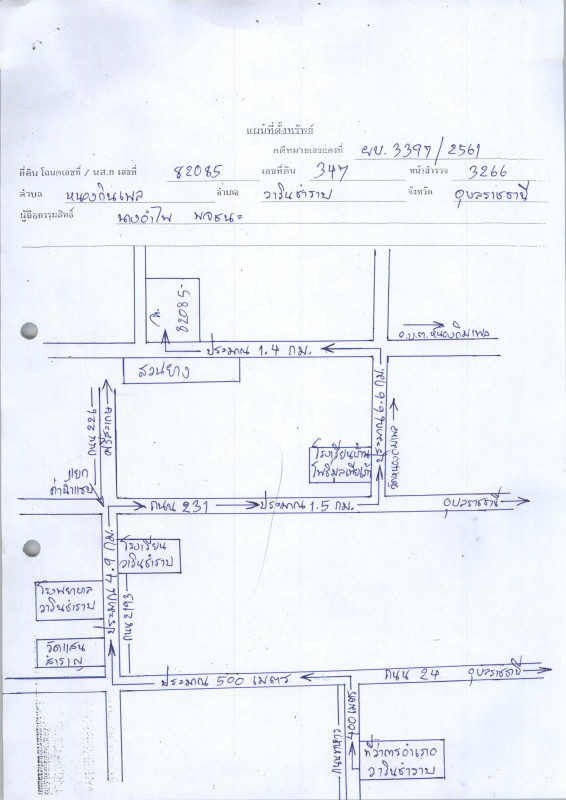 แผนที่ตั้งทรัพย์
คดีหมายเลขแดงที่ ผบ. 3397/2561
ที่ดิน โฉนดเลขที่ / นส.ก เลขที่ 82085 เลขที่ดิน 347 หน้าสำรวจ 3266
ตำบล หนองกินเพล อำเภอ วารินชำราบ จังหวัด อุบลราชธานี
ผู้ถือกรรมสิทธิ์ นางอำไพ
82085
ประมาณ 1.4 กม.
อ.บ.ต.หนองกินเพล
สวนยาง
ถนน 226
ศรีสะเกษ
ประมาณ 6.6 กม.
โรงเรียนบ้าน
แยก
ถนน 231
ประมาณ 1.5 กม.
อุบลราชธานี
ประมาณ 4.9 กม.
โรงเรียน
วารินชำราบ
ถนน 2193
โรงพยาบาล
วารินชำราบ
วัดแสน
สำราญ
ประมาณ 500 เมตร
ถนน 24
อุบลราชธานี
400 เมตร
ที่ว่าการอำเภอ
วารินชำราบ